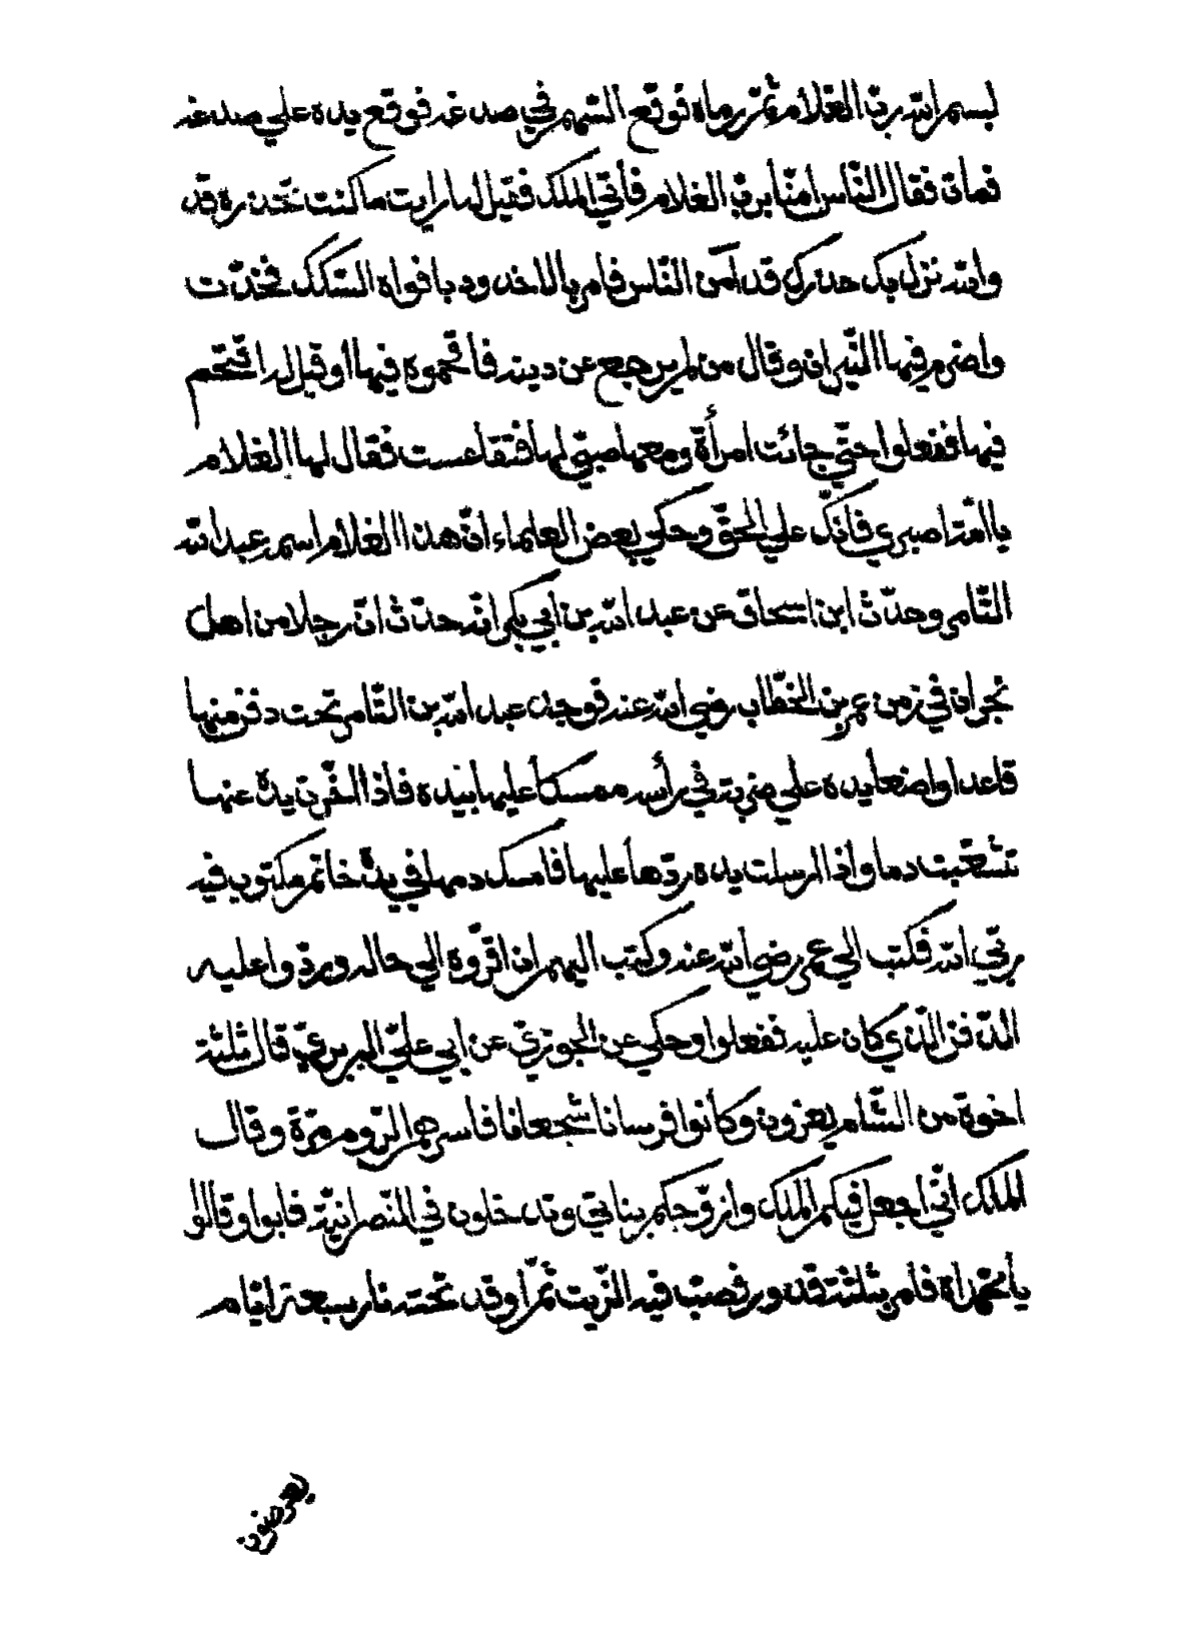 بسم الله ربّ الغلام ثمّ رماه فوقع السّهم في صدغه فوقع يده علي صدغه
فمات فقال النّاس امنّا بربّ الغلام فأتي الملك فقيل له ارايت ما كنت تحذره قد
والله نزل بك حذرك قد آمن النّاس فامر بالاخدود بافواه السّكك فخدّت
واضرم فيها النّيران وقال من لم يرجع عن دينه فأقحموه فيها أو قيل له اقتحم
فيها ففعلوا حتّي جائت امرأة ومعها صبيّ لها فتقاعست فقال لها الغلام
يا امّه اصبري فانّك علي الحقّ وحكي بعض العلماء انّ هذا الغلام اسمه عبد الله
التّامر وحدّث ابن اسحاق عن عبد الله بن أبي بكر انّه حدّث انّ رجلا من اهل
نجران في زمن عمر بن الخطّاب رضي الله عنه فوجد عبد الله بن التّامر تحت دفن منها
قاعدا واضعا يده علي ضربة في رأسه ممسكا عليها بيده فاذا اخّرت يده عنها
تشعّبت دما واذا ارسلت يده ردّها عليها فامسك دمها في يده خاتم مكتوب فيه
ربّي الله فكتب الي عمر رضي الله عنه وكتب اليهم ان اقرّوه الي حاله وردّوا عليه
الدّفن الّذي كان عليه ففعلوا وحكي عن الجوزيّ عن ابي عليّ البربريّ قال ثلثة
اخوة من الشّام يغزون وكانوا فرسانا شجعانا فاسرهم الرّوم مرّة وقال
الملك انّي اجعل فيكم الملك وازوّجكم بناتي وتدخلون في النّصرانيّة فابوا وقالوا
يا محمّداه فامر بثلثة قدور فصبّ فيه الزّيت ثمّ اوقد تحته نار سبعة ايّام
يعرضون